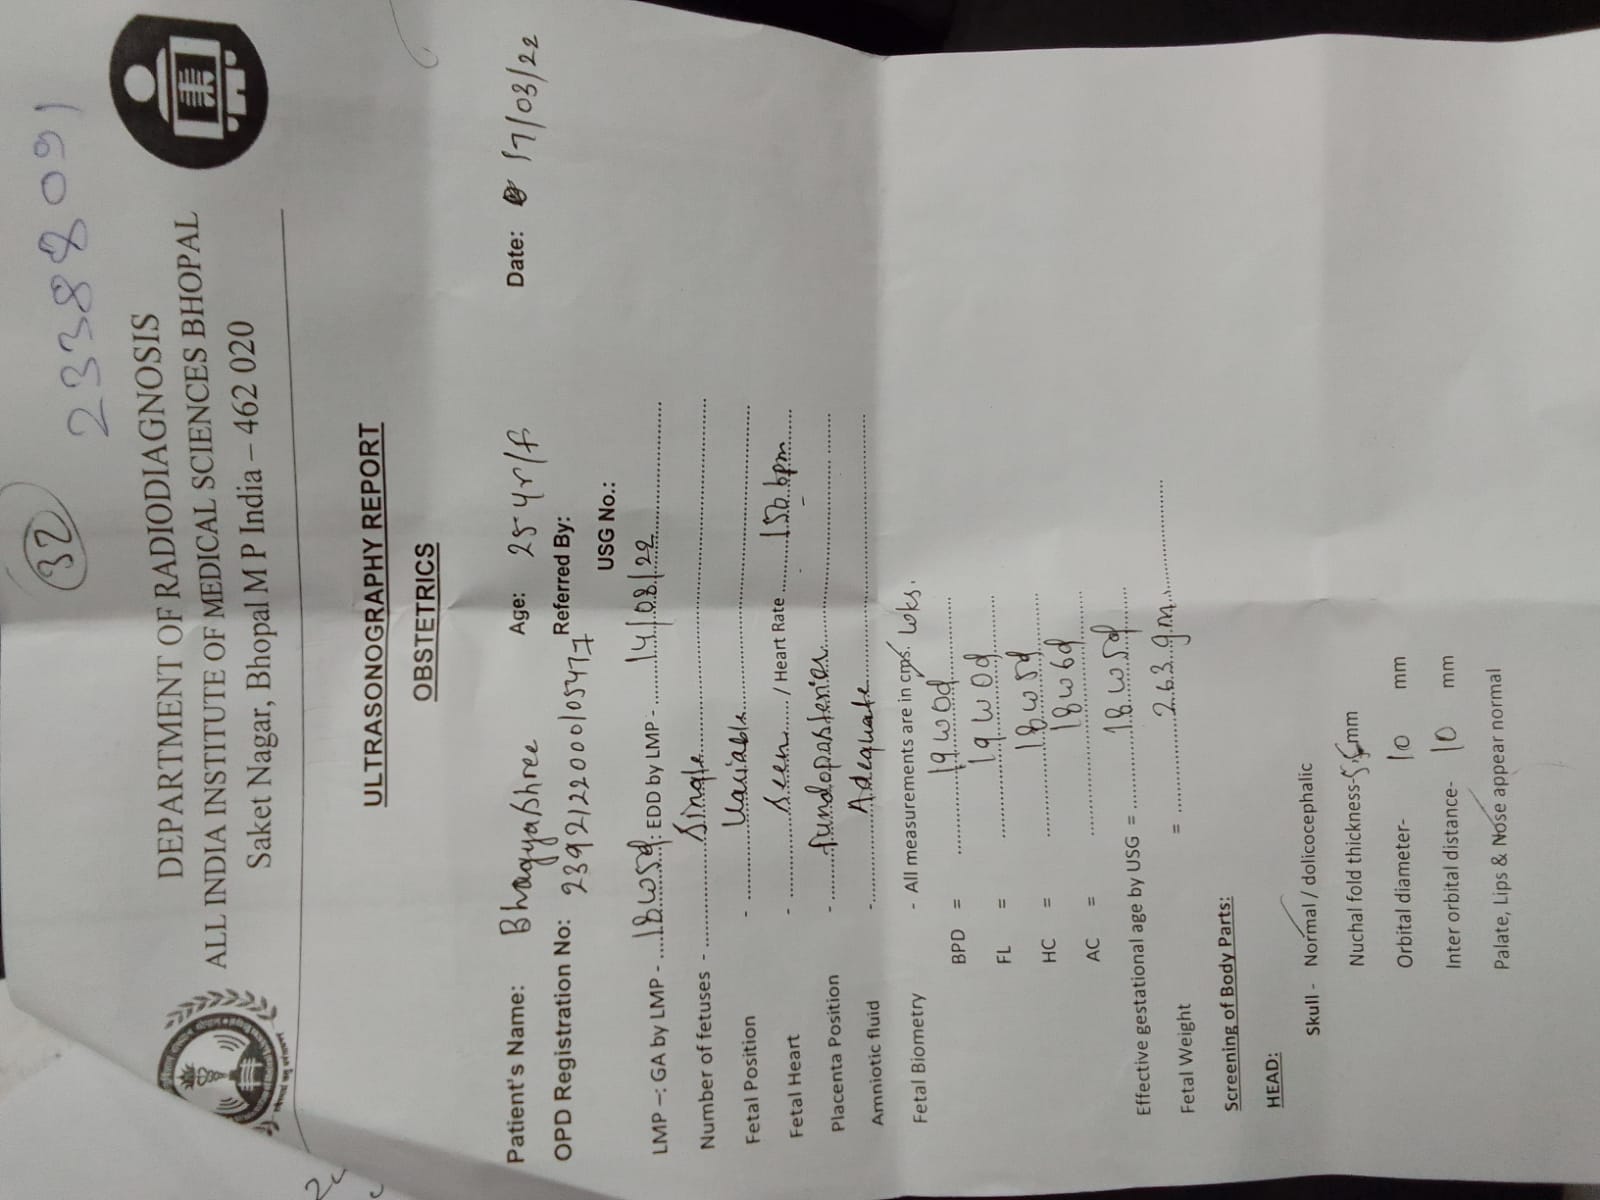 32
23388091
DEPARTMENT OF RADIODIAGNOSIS
ALL INDIA INSTITUTE OF MEDICAL SCIENCES BHOPAL
Saket Nagar, Bhopal M P India – 462 020
ULTRASONOGRAPHY REPORT
OBSTETRICS
Patient's Name: Bhagyashree Age: 25 yr/f Date: 17/03/22
OPD Registration No: 2392122000105477 Referred By:
USG No.:
LMP –: GA by LMP - 18w5d: EDD by LMP - 14/08/22
Number of fetuses - Single
Fetal Position - Variable
Fetal Heart - Seen / Heart Rate 152 bpm
Placenta Position - fundoposterior
Amniotic fluid - Adequate
Fetal Biometry - All measurements are in cms. wks.
BPD = 19w0d
FL = 19w0d
HC = 18w5d
AC = 18w6d
Effective gestational age by USG = 18w5d
Fetal Weight = 263 gm
Screening of Body Parts:
HEAD:
Skull - Normal / dolicocephalic
Nuchal fold thickness- mm
Orbital diameter- 10 mm
Inter orbital distance- 10 mm
Palate, Lips & Nose appear normal